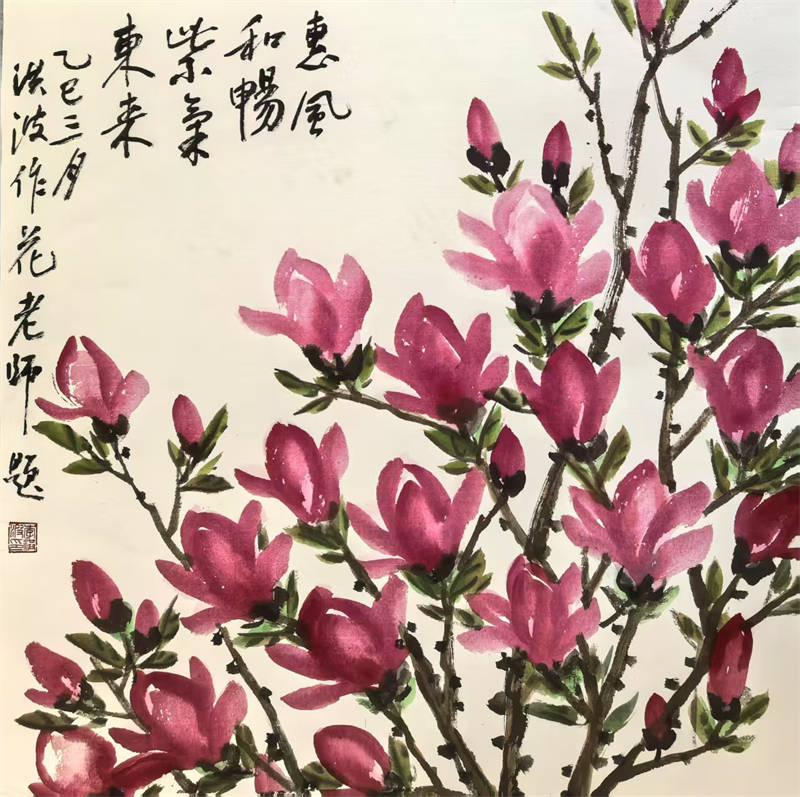 惠風
和暢
紫氣
東来
乙巳三月
洪波作花老师题